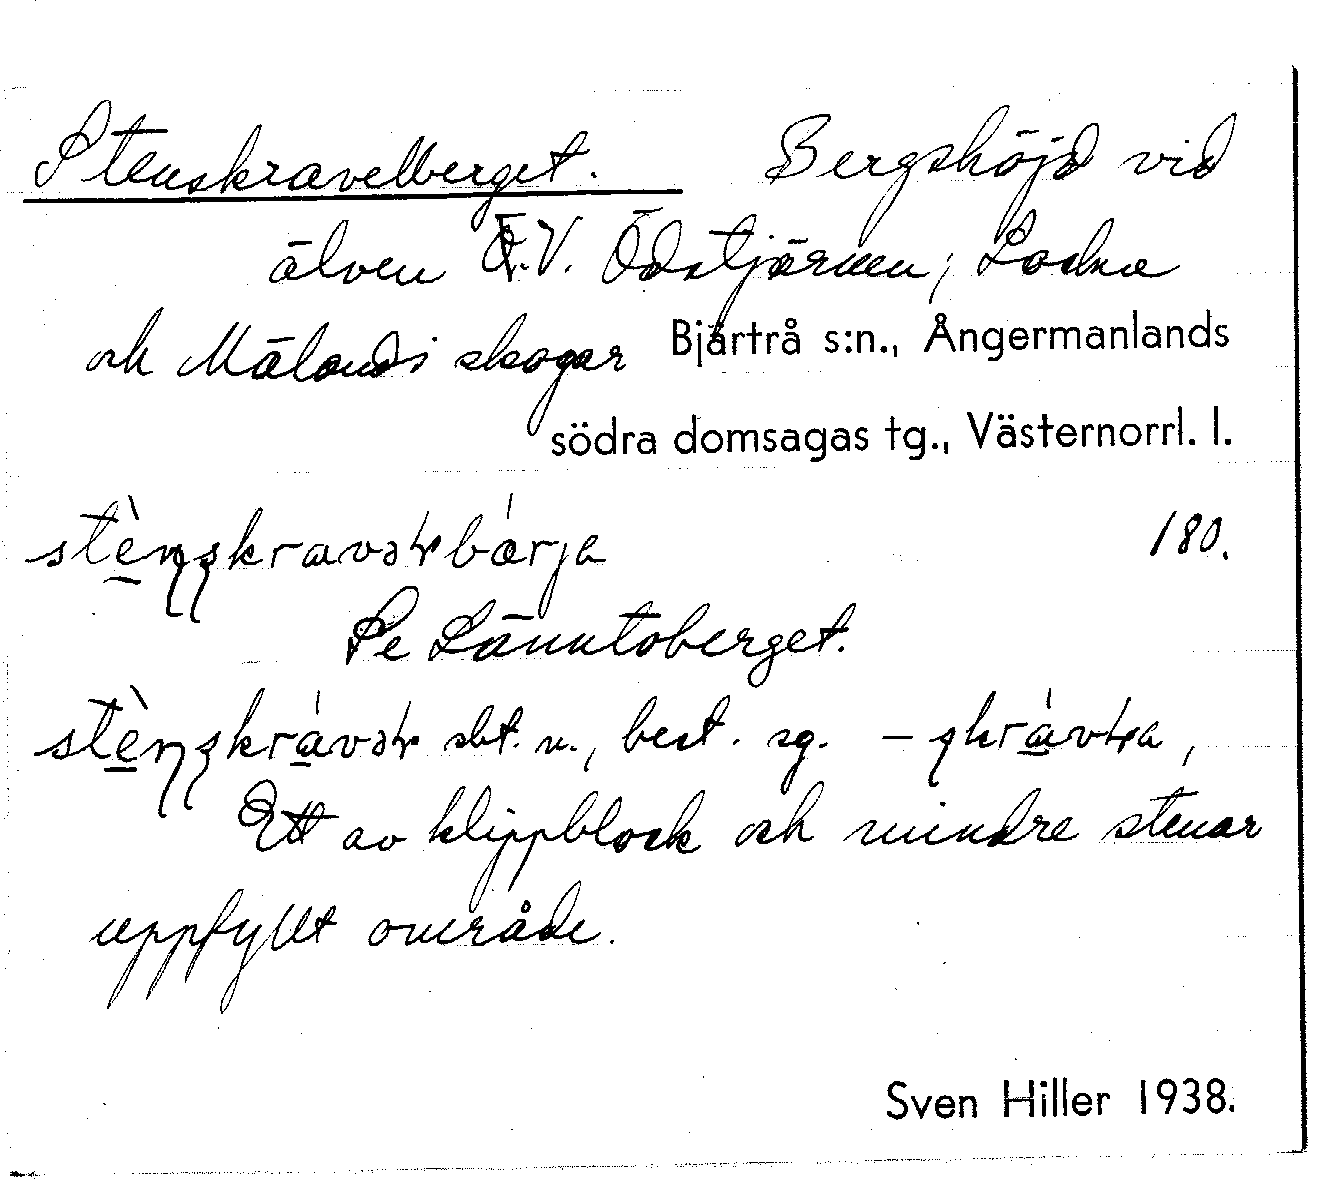 Stenskravelberget. Bergshöjd vid
älven Ö.V. Ödstjärnen, Lockne
och Mälands skogar Bjärtrå s:n., Ångermanlands
södra domsagas tg., Västernorrl. l.
180.
Se Länntoberget.
sbt. n., best. sg.
Ett av klippblock och mindre stenar
uppfyllt område.
Sven Hiller 1938.